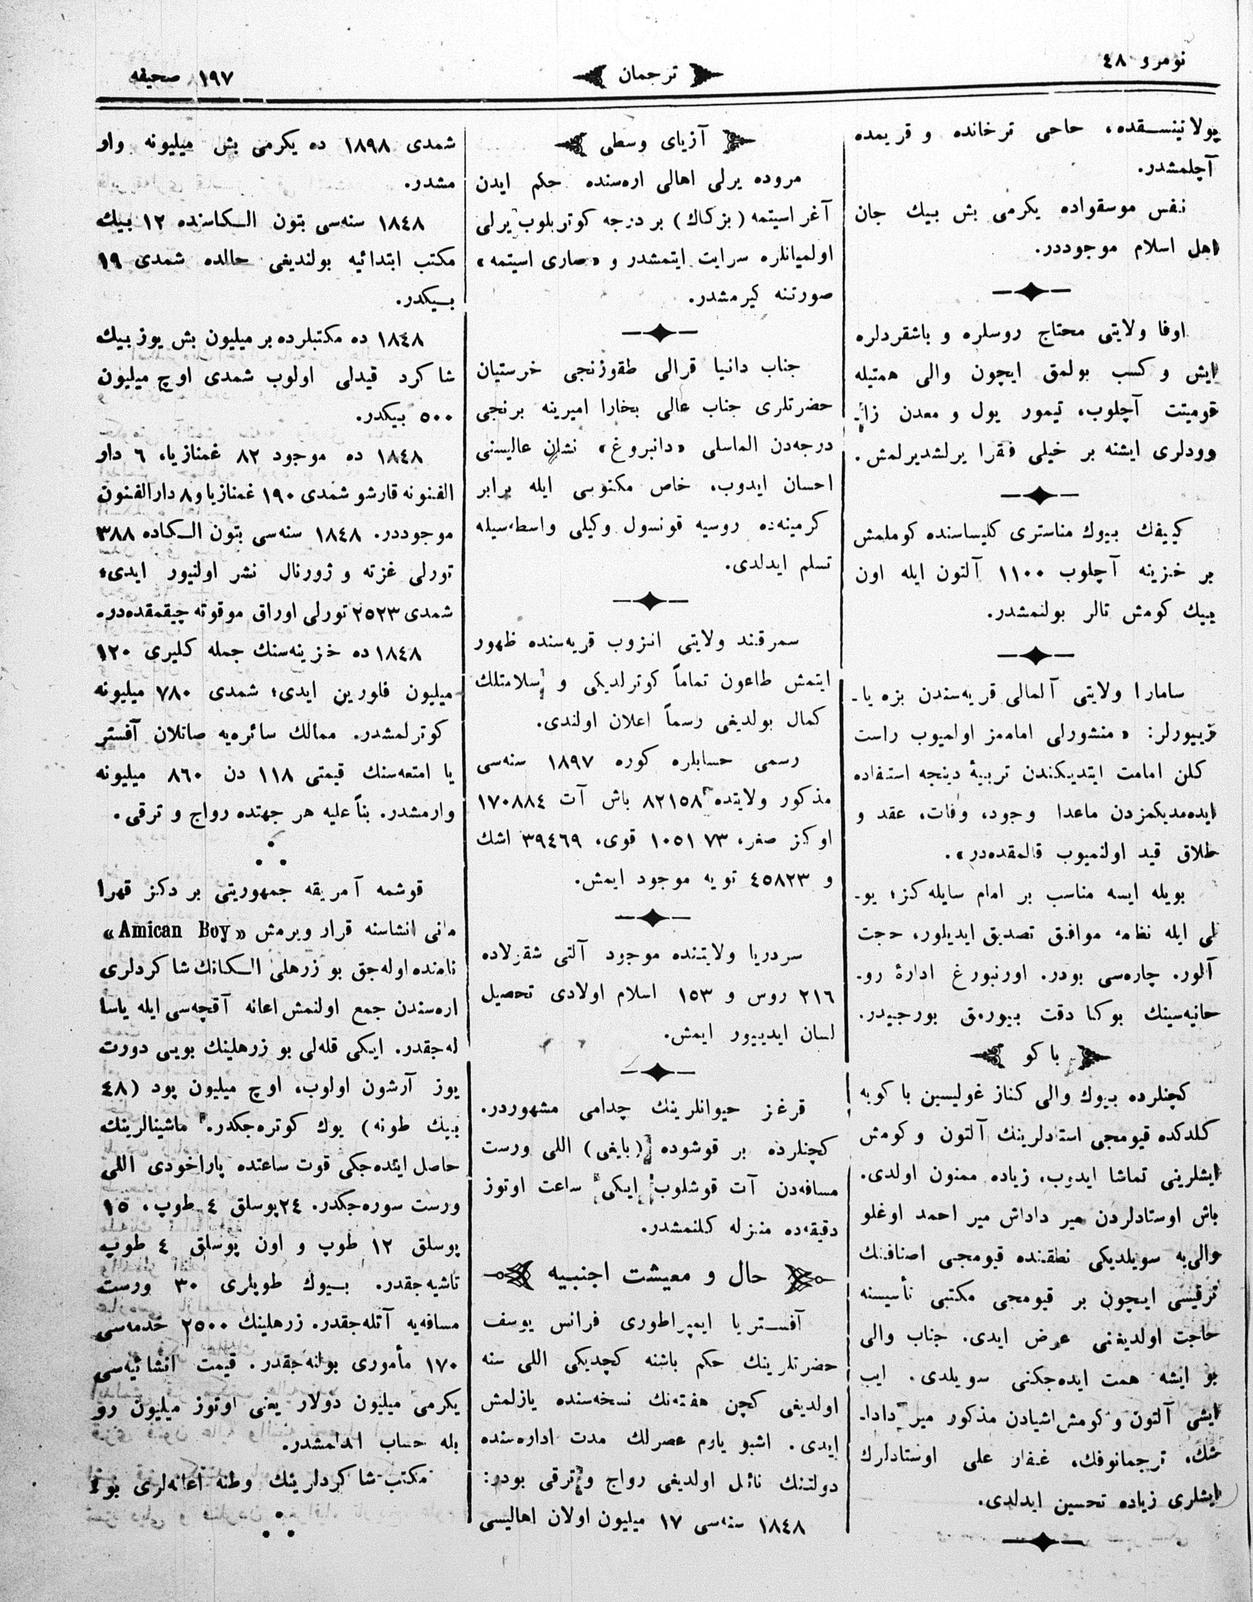 نومرو ٤٨
ترجمان
١٩٧ صحيفه
پولاتينسـقده، حاجى ترخانده و قريمده
آچلمشدر.
نفس موسقواده يكرمى بش بيك جان
اهل اسلام موجوددر.
اوفا ولايتى محتاج روسلره و باشقردلره
ايش و كسب بولمق ايچون والى همتيله
قوميتت آچلوب، تيمور يول و معدن زا-
وودلرى ايشنه بر خيلى فقرا يرلشديرلمش.
كييفك بيوك مناسترى كليساسنده كوملمش
بر خزينه آچلوب ١١٠٠ آلتون ايله اون
بيك كومش تالر بولنمشدر.
سامارا ولايتى آلمالى قريه‌سندن بزه يا-
زييورلر: «منشورلى اماممز اولميوب راست
كلن امامت ايتديكندن تربيۀ دينجه استفاده
ايده‌مديكمزدن ماعدا وجود، وفات، عقد و
طلاق قيد اولنميوب قالمقده‌در».
بويله ايسه مناسب بر امام سايله‌كز؛ يو-
لى ايله نظامه موافق تصديق ايديلور، حجت
آلور. چاره‌سى بودر. اورنبورغ ادارۀ رو-
حانيه‌سينك بوكا دقت بيورمق بورجيدر.
باكو
كچنلرده بيوك والى كناز غوليسين باكويه
كلدكده قيومجى استادلرينك آلتون و كومش
ايشلرينى تماشا ايدوب، زياده ممنون اولدى.
باش اوستادلردن مير داداش مير احمد اوغلو
والى‌يه سويلديكى نطقنده قيومجى اصنافنك
ترقيسى ايچون بر قيومجى مكتبى تأسيسنه
حاجت اولديغنى عرض ايدى. جناب والى
بو ايشه همت ايده‌جكنى سويلدى. ايب
ايشى آلتون و كومش اشيادن مذكور مير دادا-
شك، ترجمانوفك، غفار على اوستادلرك
ايشلرى زياده تحسين ايدلدى.
آزياى وسطى
مروده يرلى اهالى اره‌سنده حكم ايدن
آغر اسيتمه (بزكاك) بر درجه كوتريلوب يرلى
اولميانلره سرايت ايتمشدر و «صارى اسيتمه»
صورتنه كيرمشدر.
جناب دانيا قرالى طقوزنجى خرستيان
حضرتلرى جناب عالى بخارا اميرينه برنجى
درجه‌دن الماسلى «دانبروغ» نشان عاليسنى
احسان ايدوب، خاص مكتوبى ايله برابر
كرمينه‌ده روسيه قونسول وكيلى واسطه‌سيله
تسلم ايدلدى.
سمرقند ولايتى انزوب قريه‌سنده ظهور
ايتمش طاعون تماماً كوترلديكى و سلامتلك
كمال بولديغى رسماً اعلان اولندى.
رسمى حسابلره كوره ١٨٩٧ سنه‌سى
مذكور ولايتده ٨٢١٥٨ باش آت ١٧٠٨٨٤
اوكز صغر، ١٠٥١٧٣ قوى، ٣٩٤٦٩ اشك
و ٤٥٨٢٣ تويه موجود ايمش.
سردريا ولايتنده موجود آلتى شقرلاده
٢١٦ روس و ١٥٣ اسلام اولادى تحصيل
لسان ايدييور ايمش.
قرغز حيوانلرينك چدامى مشهوردر.
كچنلرده بر قوشوده (بايغى) اللى ورست
مسافه‌دن آت قوشلوب ايكى ساعت اوتوز
دقيقه‌ده منزله كلنمشدر.
حال و معيشت اجنبيه
آفستريا ايمپراطورى فرانس يوسف
حضرتلرينك حكم باشنه كچديكى اللى سنه
اولديغى كچن هفته‌نك نسخه‌سنده يازلمش
ايدى. اشبو يارم عصرلك مدت اداره‌سنده
دولتنك نائل اولديغى رواج و ترقى بودر:
١٨٤٨ سنه‌سى ١٧ ميليون اولان اهاليسى
شمدى ١٨٩٨ ده يكرمى بش ميليونه وار
مشدر.
١٨٤٨ سنه‌سى بتون الـكاسنده ١٢ بيك
مكتب ابتدائيه بولنديغى حالده شمدى ١٩
بيكدر.
١٨٤٨ ده مكتبلرده بر ميليون بش يوز بيك
شاكرد قيدلى اولوب شمدى اوچ ميليون
٥٠٠ بيكدر.
١٨٤٨ ده موجود ٨٢ غمنازيا، ٦ دار
الفنونه قارشو شمدى ١٩٠ غمنازيا و ٨ دارالفنون
موجوددر. ١٨٤٨ سنه‌سى بتون الـكاده ٣٨٨
تورلى غزته و ژورنال نشر اولنيور ايدى؛
شمدى ٢٥٢٣ تورلى اوراق موقوته چيقمقده‌در.
١٨٤٨ ده خزينه‌سنك جمله كليرى ١٢٠
ميليون فلورين ايدى؛ شمدى ٧٨٠ ميليونه
كوترلمشدر. ممالك سائره‌يه صاتلان آفستر
يا امتعه‌سنك قيمتى ١١٨ دن ٨٦٠ ميليونه
وارمشدر. بناً عليه هر جهتده رواج و ترقى.
قوشمه آمريقه جمهوريتى بر دكز قهرا
مانى انشاسنه قرار ويرمش «Amican Boy»
نامنده اوله‌جق بو زرهلى الـكانك شاكردلرى
اره‌سندن جمع اولنمش اعانه آقچه‌سى ايله ياسا
له‌جقدر. ايكى قله‌لى بو زرهلينك بويى دورت
يوز آرشون اولوب، اوچ ميليون پود (٤٨
بيك طونه) يوك كوتره‌جكدر. ماشينالرينك
حاصل ايئده‌جكى قوت ساعتده پاراخودى اللى
ورست سوره‌جكدر. ٢٤ پوسلق ٤ طوپ، ١٥
پوسلق ١٢ طوپ و اون پوسلق ٤ طوپ
تاشيه‌جقدر. بـيوك طوپلرى ٣٠ ورست
مسافه‌يه آتله‌جقدر. زرهلينك ٢٥٠٠ خدمه‌سى
١٧٠ مأمورى بولنه‌جقدر. قيمت انشائيه‌سى
يكرمى ميليون دولار يعنى اوتوز ميليون رو
بله حساب ايدلمشدر.
مكتب شاكردلرينك وطنه اعانه‌لرى بو